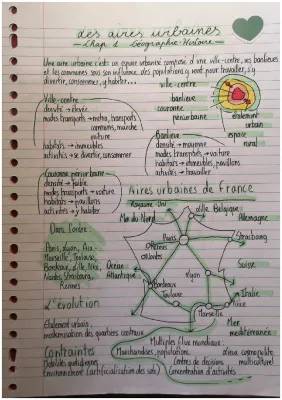 des aires urbaines
Chap 1 Géographie-Histoire
Une aire urbaine c'est un espace urbanisé composé d'une ville-centre, ses banlieues
et les communes sous son influence. des populations y vont pour travailler, s'y
divertir, consommer, y habiter...
Ville-centre
densité → élevée
modes transports → métro, transports
communs, marche
voiture
habitats → immeubles
activités → se divertir, consommer
ville-centre
banlieue
couronne
périurbaine
étalement
urbain
espace
rural
Banlieue
densité → moyenne
modes transports → voiture
habitats → immeubles, pavillons
activités → travailler
Couronne périurbaine
densité → faible
modes transports → voiture
habitats → pavillons
activités → y habiter
Aires urbaines de France
Royaume-Uni
Mer du Nord
Lille
Belgique
Allemagne
Paris
Strasbourg
Rennes
Nantes
Océan
Atlantique
Lyon
Suisse
Bordeaux
Toulouse
Italie
Nice
Marseille
Mer
méditerranée
Paris, Lyon, Aix-
Marseille, Toulouse,
Bordeaux, Lille, Nice,
Nantes, Strasbourg,
Rennes
L'évolution
Étalement urbain,
modernisation des quartiers centraux
Contraintes
Mobilités quotidiennes
Environnement (artificialisation des sols)
Multiples flux mondiaux :
Marchandises, populations.
Centres de décisions
Concentration d'activités
cosmopolite
multiculturel